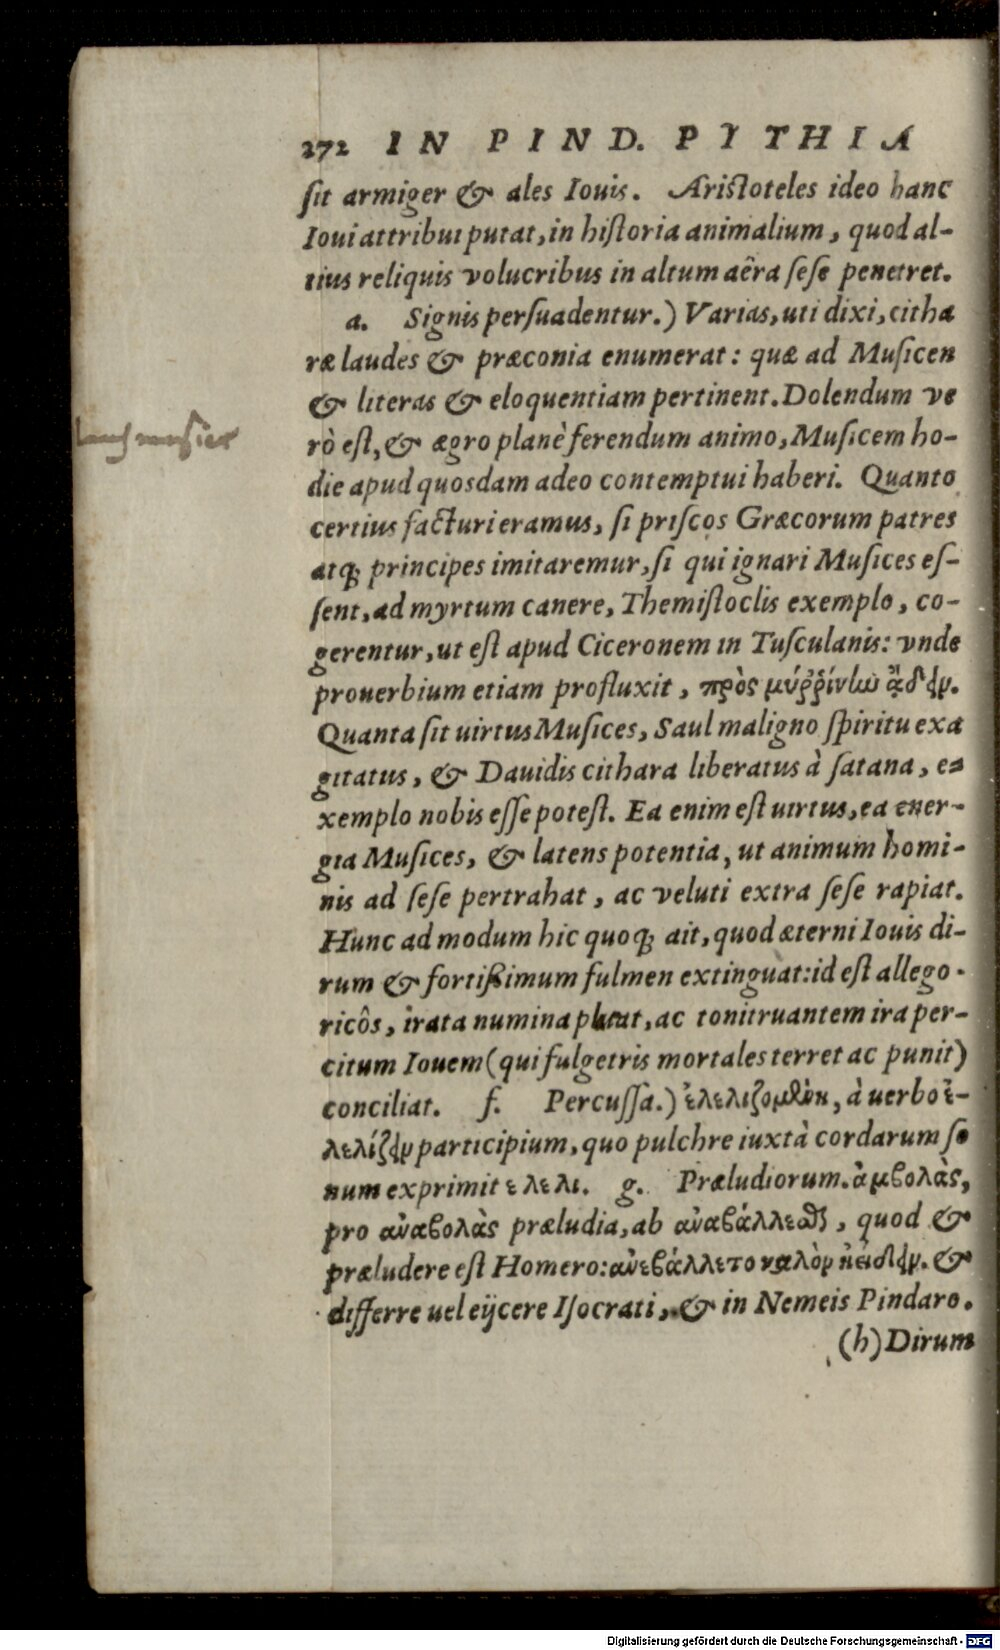 272 IN PIND. PYTHIA
ſit armiger & ales Iouis. Ariſtoteles ideo hanc
Ioui attribui putat, in hiſtoria animalium, quod al-
tius reliquis volucribus in altum aêra ſeſe penetret.
a. Signis perſuadentur.) Varias, uti dixi, citha
ræ laudes & præconia enumerat: quæ ad Muſicen
& literas & eloquentiam pertinent. Dolendum ve
rò eſt, & ægro planè ferendum animo, Muſicem ho-
die apud quosdam adeo contemptui haberi. Quanto
certius facturi eramus, ſi priſcos Græcorum patres
atq; principes imitaremur, ſi qui ignari Muſices eſ-
ſent, ad myrtum canere, Themiſtoclis exemplo, co-
gerentur, ut eſt apud Ciceronem in Tuſculanis: vnde
prouerbium etiam profluxit, πρὸς μύῤῥίνίω ᾄδειν.
Quanta ſit uirtus Muſices, Saul maligno ſpiritu exa
gitatus, & Dauidis cithara liberatus à ſatana, e=
xemplo nobis eſſe poteſt. Ea enim eſt uirtus, ea ener-
gia Muſices, & latens potentia, ut animum homi-
nis ad ſeſe pertrahat, ac veluti extra ſeſe rapiat.
Hunc ad modum hic quoq; ait, quod æterni Iouis di-
rum & fortißimum fulmen extinguat: id eſt allego-
ricôs, irata numina placat, ac tonitruantem ira per-
citum Iouem (qui fulgetris mortales terret ac punit)
conciliat. f. Percuſſa.) ἐλελιζομένη, à uerbo ἐ-
λελίζειν participium, quo pulchre iuxtà cordarum ſo
num exprimit ε λε λι. g. Præludiorum. ἀμβολὰς,
pro ἀναβολὰς præludia, ab ἀναβάλλεσθαι, quod &
præludere eſt Homero: ἀνεβάλλετο καλὸν ἀείδειν. &
differre uel eijcere Iſocrati, & in Nemeis Pindaro.
(h) Dirum
Digitalisierung gefördert durch die Deutsche Forschungsgemeinschaft - DFG